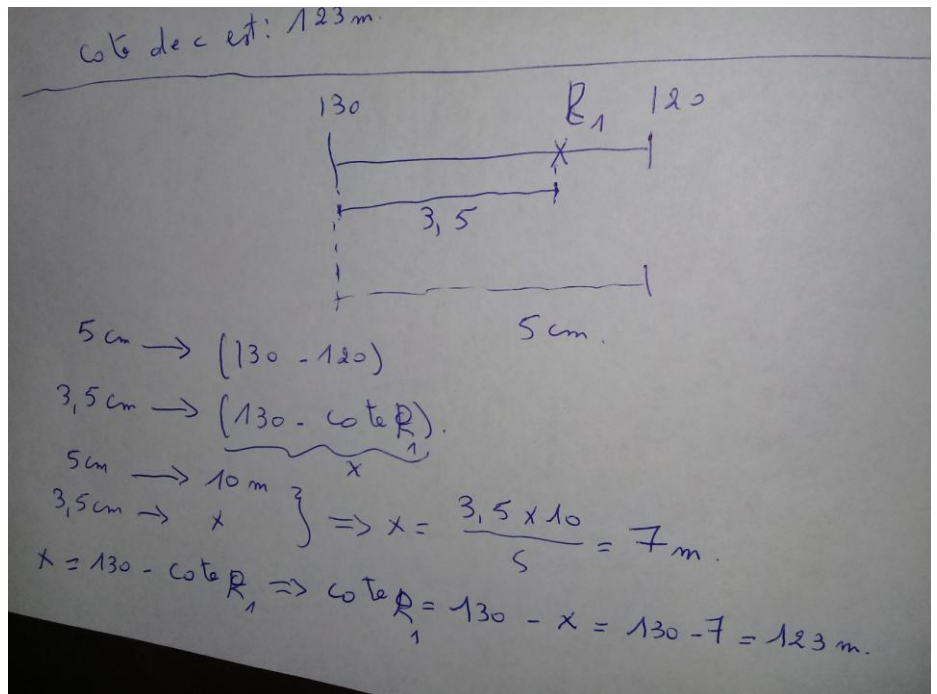 cote de c est: 123 m.
130 R1 120
3,5
5 cm.
5 cm → (130 - 120)
3,5 cm → (130 - cote R1).
x
5 cm → 10 m
3,5 cm → x } => x = 3,5 x 10 / 5 = 7 m.
x = 130 - cote R1 => cote R1 = 130 - x = 130 - 7 = 123 m.